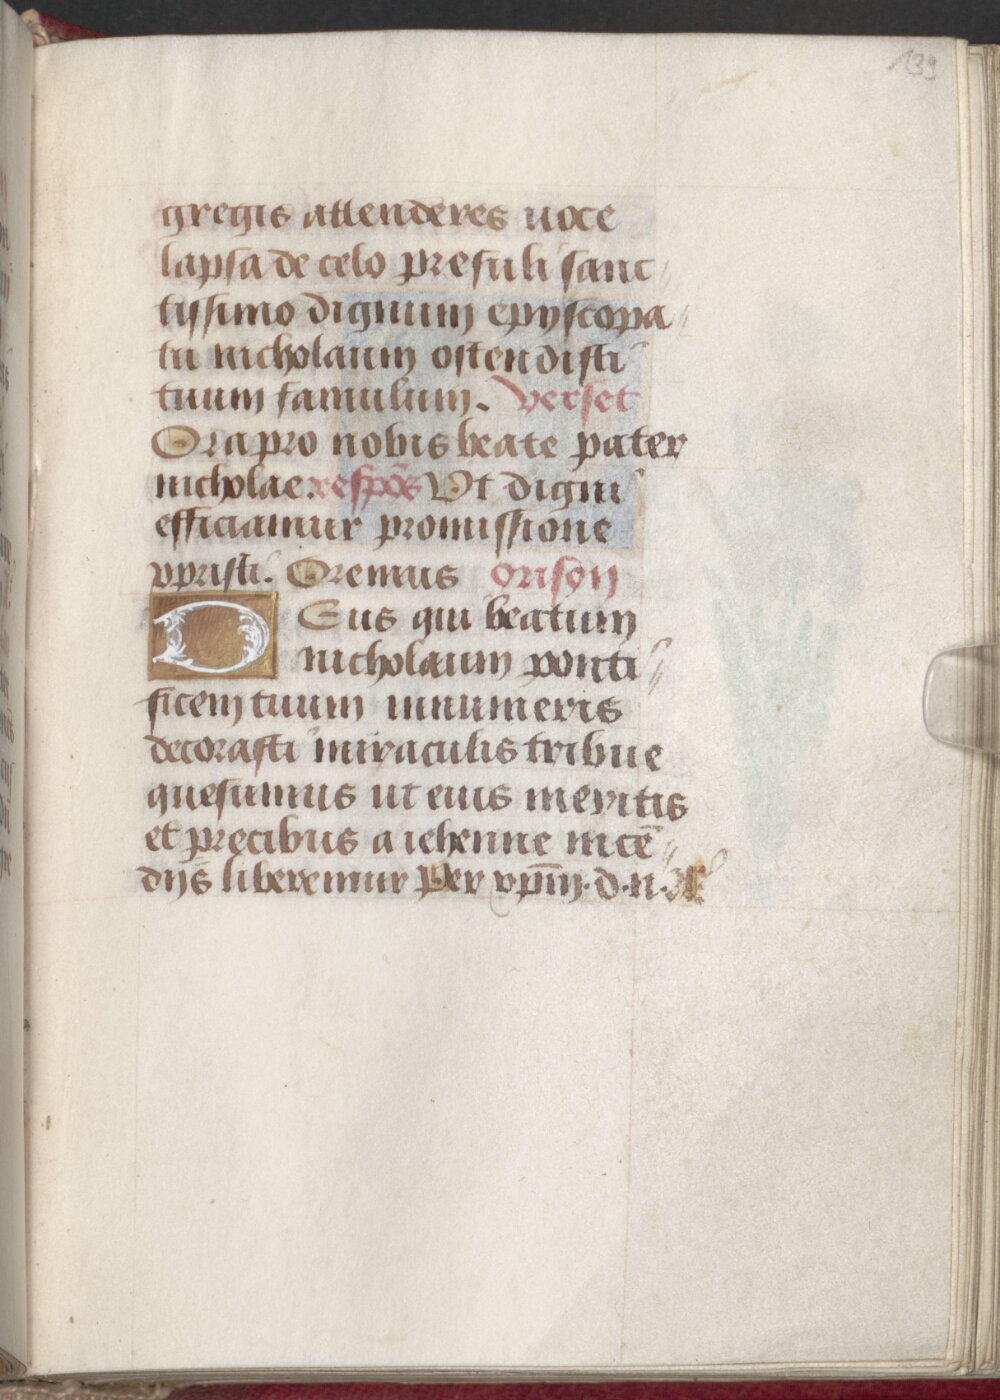 139
gregis attenderes uoce
lapsa de celo presuli sanc
tissimo dignum epyscopa
tu nicholaum ostendisti
tuum famulum. verset
Ora pro nobis beate pater
nicholae. respōs Ut digni
efficiamur promissione
xpristi. Oremus orison
DEus qui beatum
nicholaum ponti
ficem tuum innumeris
decorasti miraculis tribue
quesumus ut eius meritis
et precibus a iehenne incē
dijs liberemur Per xp̄m. d. n.